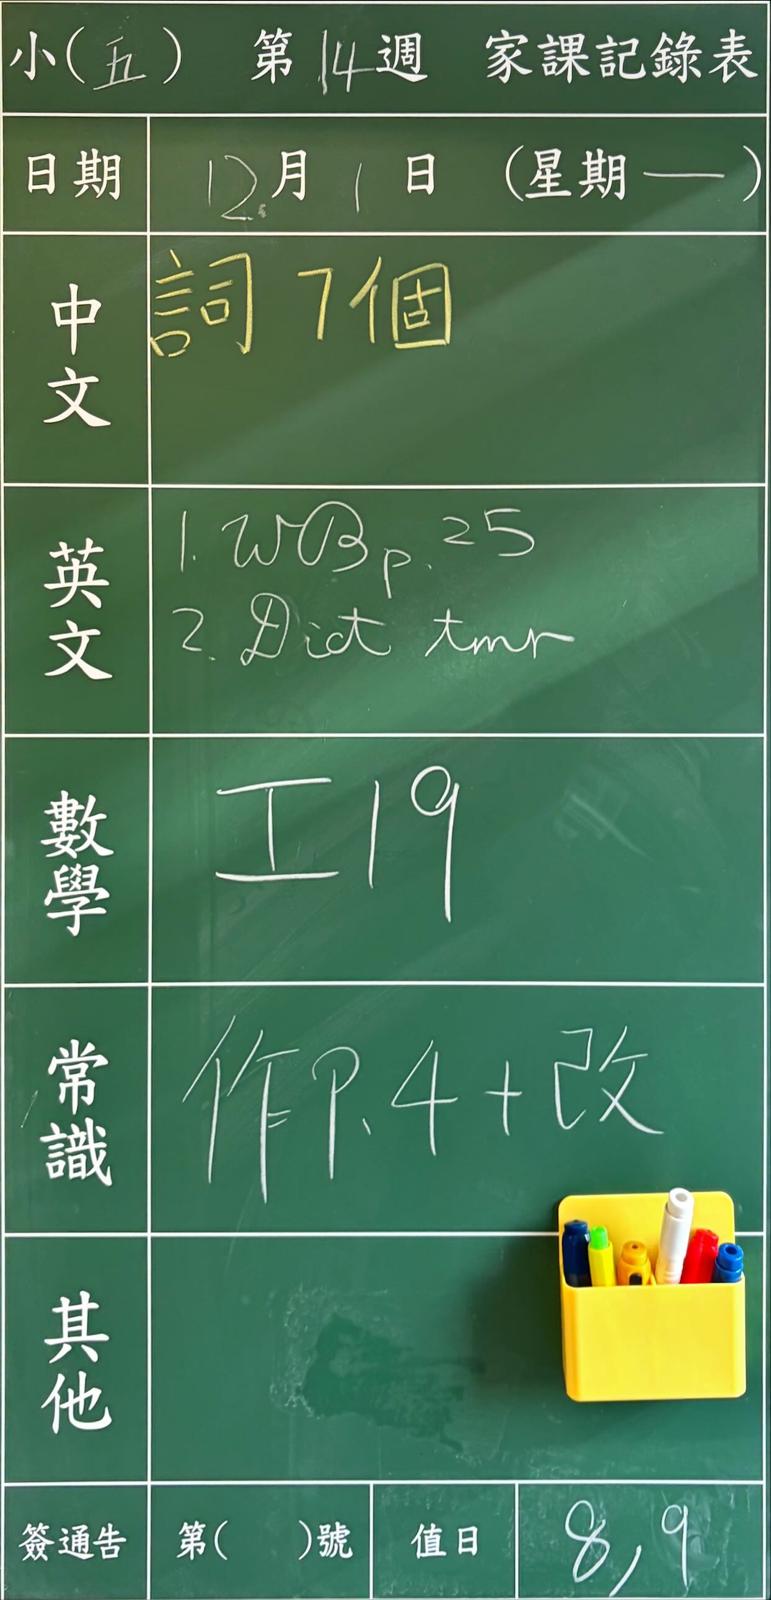 小(五) 第14週 家課記錄表
日期 12月1日 (星期一)
中文 詞7個
英文 1. WB p. 25
2. Dict tmr
數學 工19
常識 作P.4+改
其他
簽通告 第( )號 值日 8,9